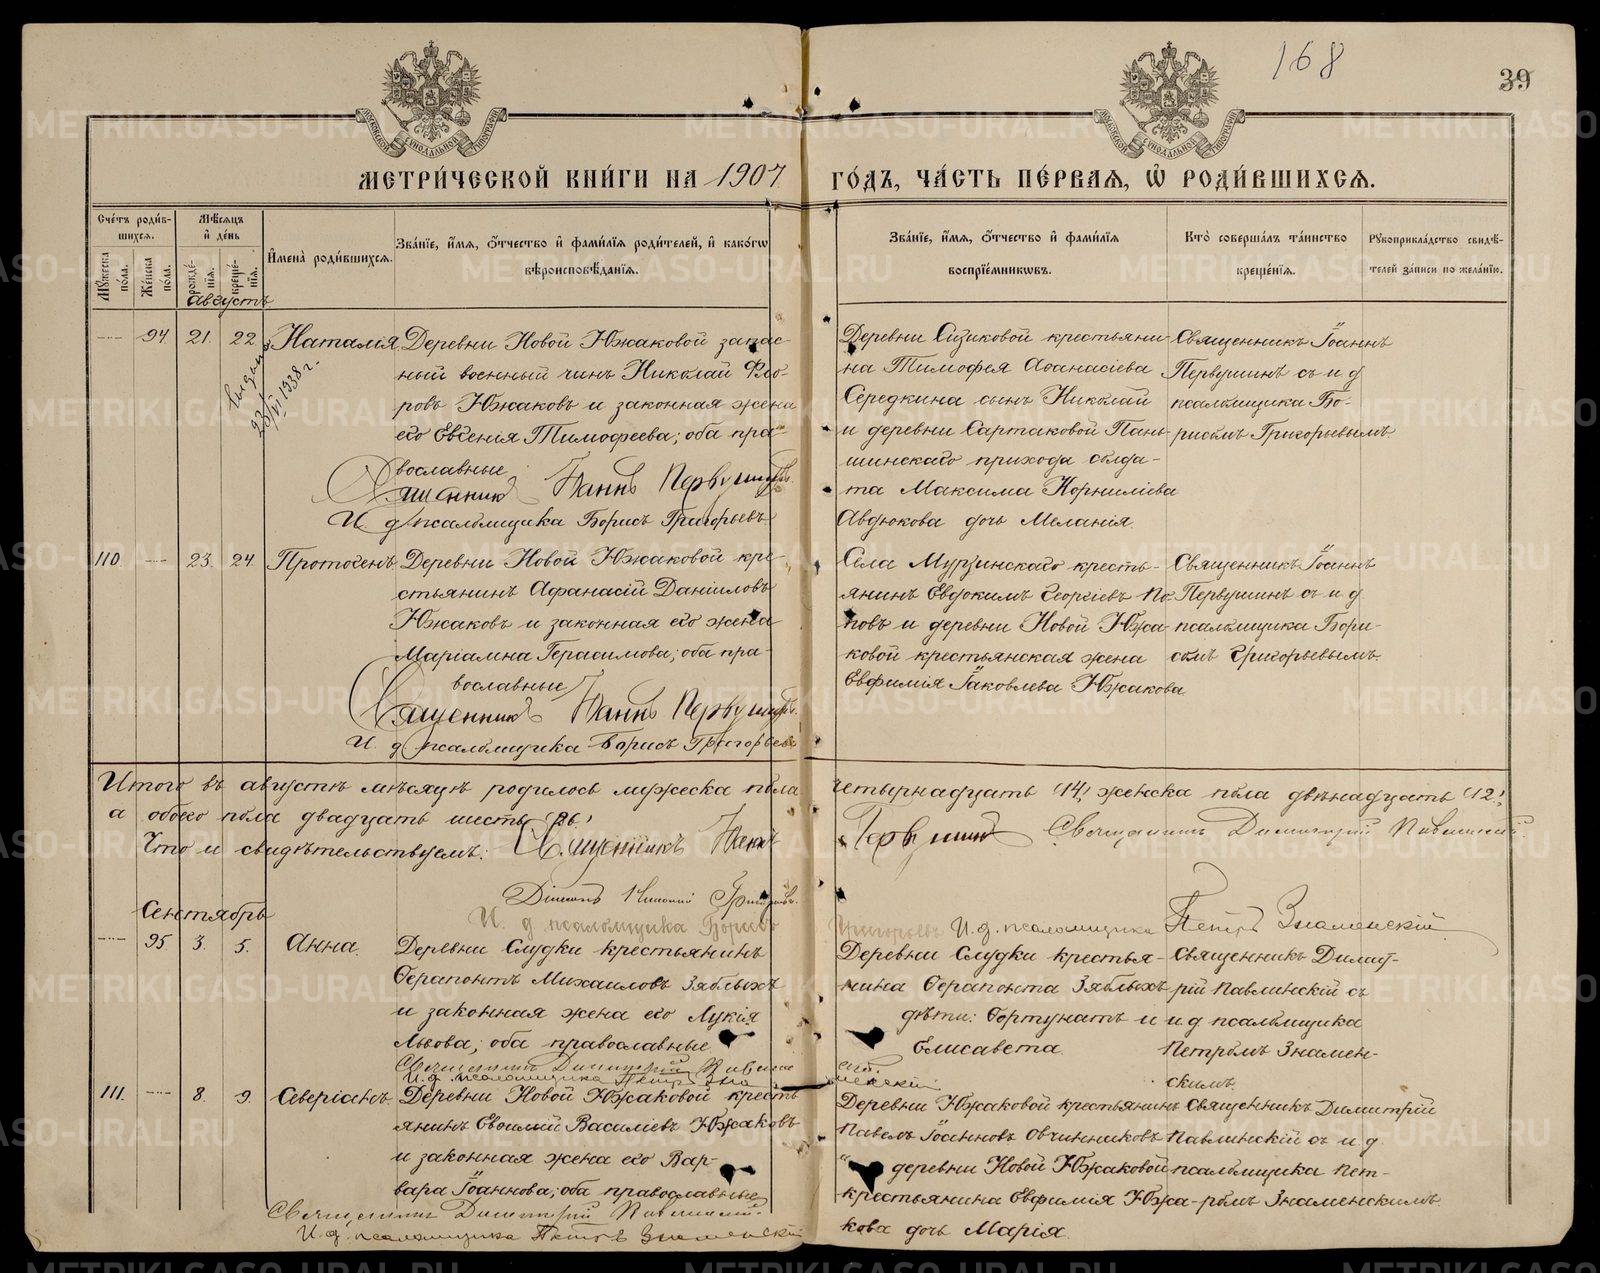 168
39
МЕТРИ́ЧЕСКОЙ КНИ́ГИ НА 1907
ГО́ДЪ, ЧА́СТЬ ПЕ́РВАЯ, Ѡ҆ РОДИ́ВШИХСЯ.
Сче́тъ роди́в-
шихся.
Мѣ́сяцъ
и҆ де́нь
Му́жеска по́ла.
Же́нска по́ла.
рожде́нїя.
креще́нїя.
И҆мена̀ роди́вшихся.
Зва́нїе, и҆́мя, ѻ҆́тчество и҆ фами́лїя роди́телей, и҆ како́гѡ
вѣроисповѣ́данїя.
Зва́нїе, и҆́мя, ѻ҆́тчество и҆ фами́лїя
воспрїе́мникѡвъ.
Кто̀ соверша́лъ та́инство
креще́нїя.
Рꙋкоприкла́дство свидѣ́-
телей за́писи по жела́нїю.
августъ
94 21. 22 Наталія Деревни Новой Южаковой запас-
ный военный чинъ Николай Фло-
ровъ Южаковъ и законная жена
его Евгенія Тимофеева; оба пра-
вославные
Священникъ Іоаннъ Первушинъ
И. д. псаломщика Борисъ Григорьевъ
23/VI 1938 г.
Деревни Сизиковой крестьяни-
на Тимофея Аѳанасіева
Середкина сынъ Николай
и деревни Сартаковой Пань-
шинскаго прихода солда-
та Максима Корниліева
Авдюкова дочь Меланія.
Священникъ Іоаннъ
Первушинъ съ и д
псаломщика Бо-
рисомъ Григорьевымъ
110. 23. 24. Протогенъ Деревни Новой Южаковой кре-
стьянинъ Афанасій Даніиловъ
Южаковъ и законная его жена
Маріамна Герасимова; оба пра-
вославные
Священникъ Іоаннъ Первушинъ.
И. д псаломщика Борисъ Григорьевъ
Села Мурзинскаго кресть-
янинъ Евдокимъ Георгіевъ По-
повъ и деревни Новой Южа-
ковой крестьянская жена
Евфимія Іаковлева Южакова
Священникъ Іоаннъ
Первушинъ съ и д
псаломщика Бори-
сомъ Григорьевымъ.
Итого въ августѣ мѣсяцѣ родилось мужеска пола четырнадцать (14), женска пола двѣнадцать (12),
а обоего пола двадцать шесть (26.)
Что и свидѣтельствуемъ: Священникъ Іоаннъ Первушинъ Священникъ Димитрій Павлинскій.
Діаконъ Николай Григорьевъ.
И. д псаломщика Борисъ Григорьевъ И. д. псаломщика Петръ Знаменскій.
Сентябрь
95 3. 5. Анна. Деревни Слудки крестьянинъ
Ѳерапонтъ Михаиловъ Зяблыхъ
и законная жена его Лукія
Львова; оба православные
Священникъ Димитрій Павлинскій.
И. д. псаломщика Петръ Знаменскій.
Деревни Слудки крестья-
нина Ѳерапонта Зяблыхъ
дѣти: Фортунатъ и
Елисавета.
Священникъ Димит-
рій Павлинскій съ
и д псаломщика
Петромъ Знамен-
скимъ.
111. 8. 9. Северіанъ. Деревни Новой Южаковой кресть-
янинъ Евѳимій Василіевъ Южаковъ
и законная жена его Вар-
вара Іоаннова; оба православные
Священникъ Димитрій Павлинскій.
И. д. псаломщика Петръ Знаменскій
Деревни Южаковой крестьянинъ
Павелъ Іоанновъ Овчинниковъ
и деревни Новой Южаковой
крестьянина Евфимія Южа-
кова дочь Марія.
Священникъ Димитрій
Павлинскій съ и. д.
псаломщика Пет-
ромъ Знаменскимъ
METRIKI.GASO-URAL.RU